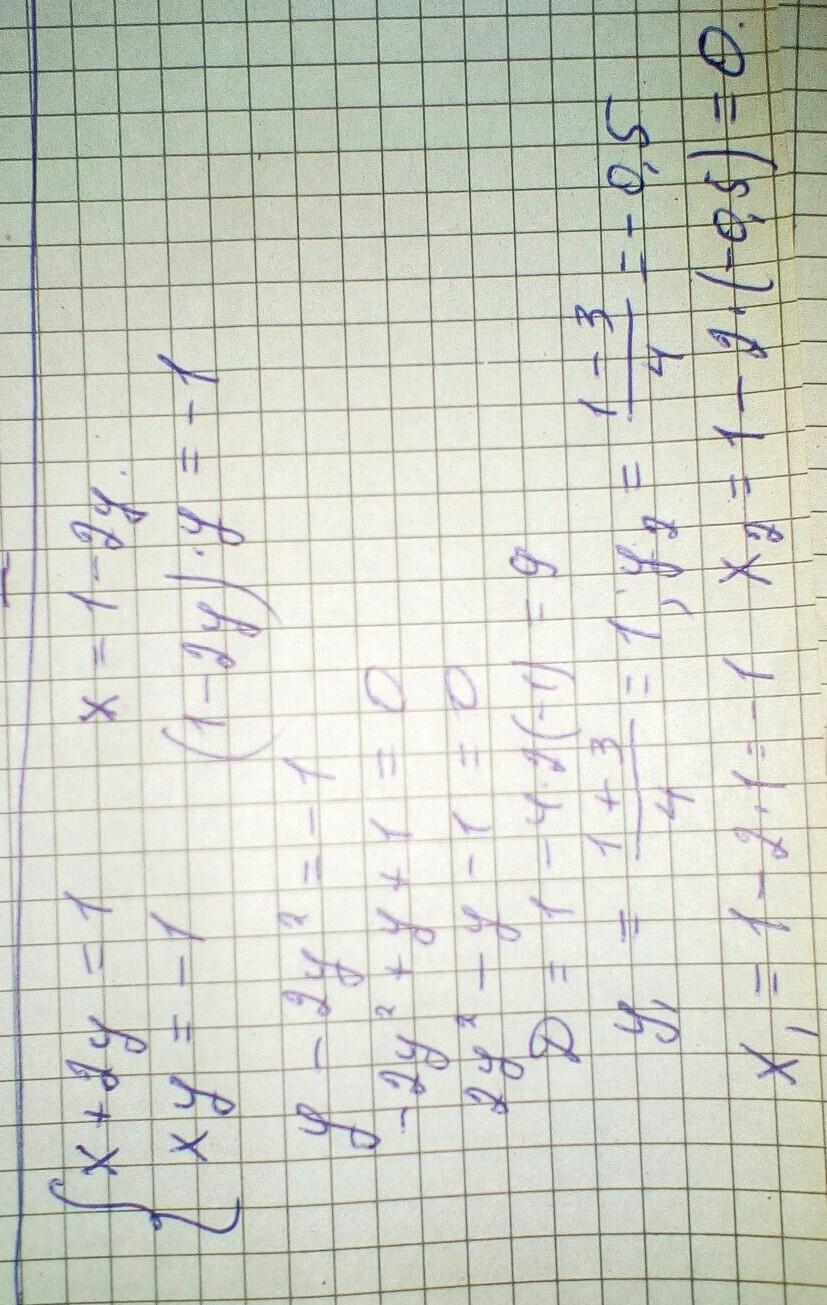 { x + 2y = 1 x = 1 - 2y.
xy = -1 (1 - 2y) · y = -1
y - 2y² = -1
-2y² + y + 1 = 0
2y² - y - 1 = 0
D = 1 - 4·2(-1) = 9
y₁ = (1 + 3)/4 = 1; y₂ = (1 - 3)/4 = -0,5
x₁ = 1 - 2·1 = -1 x₂ = 1 - 2·(-0,5) = 0.